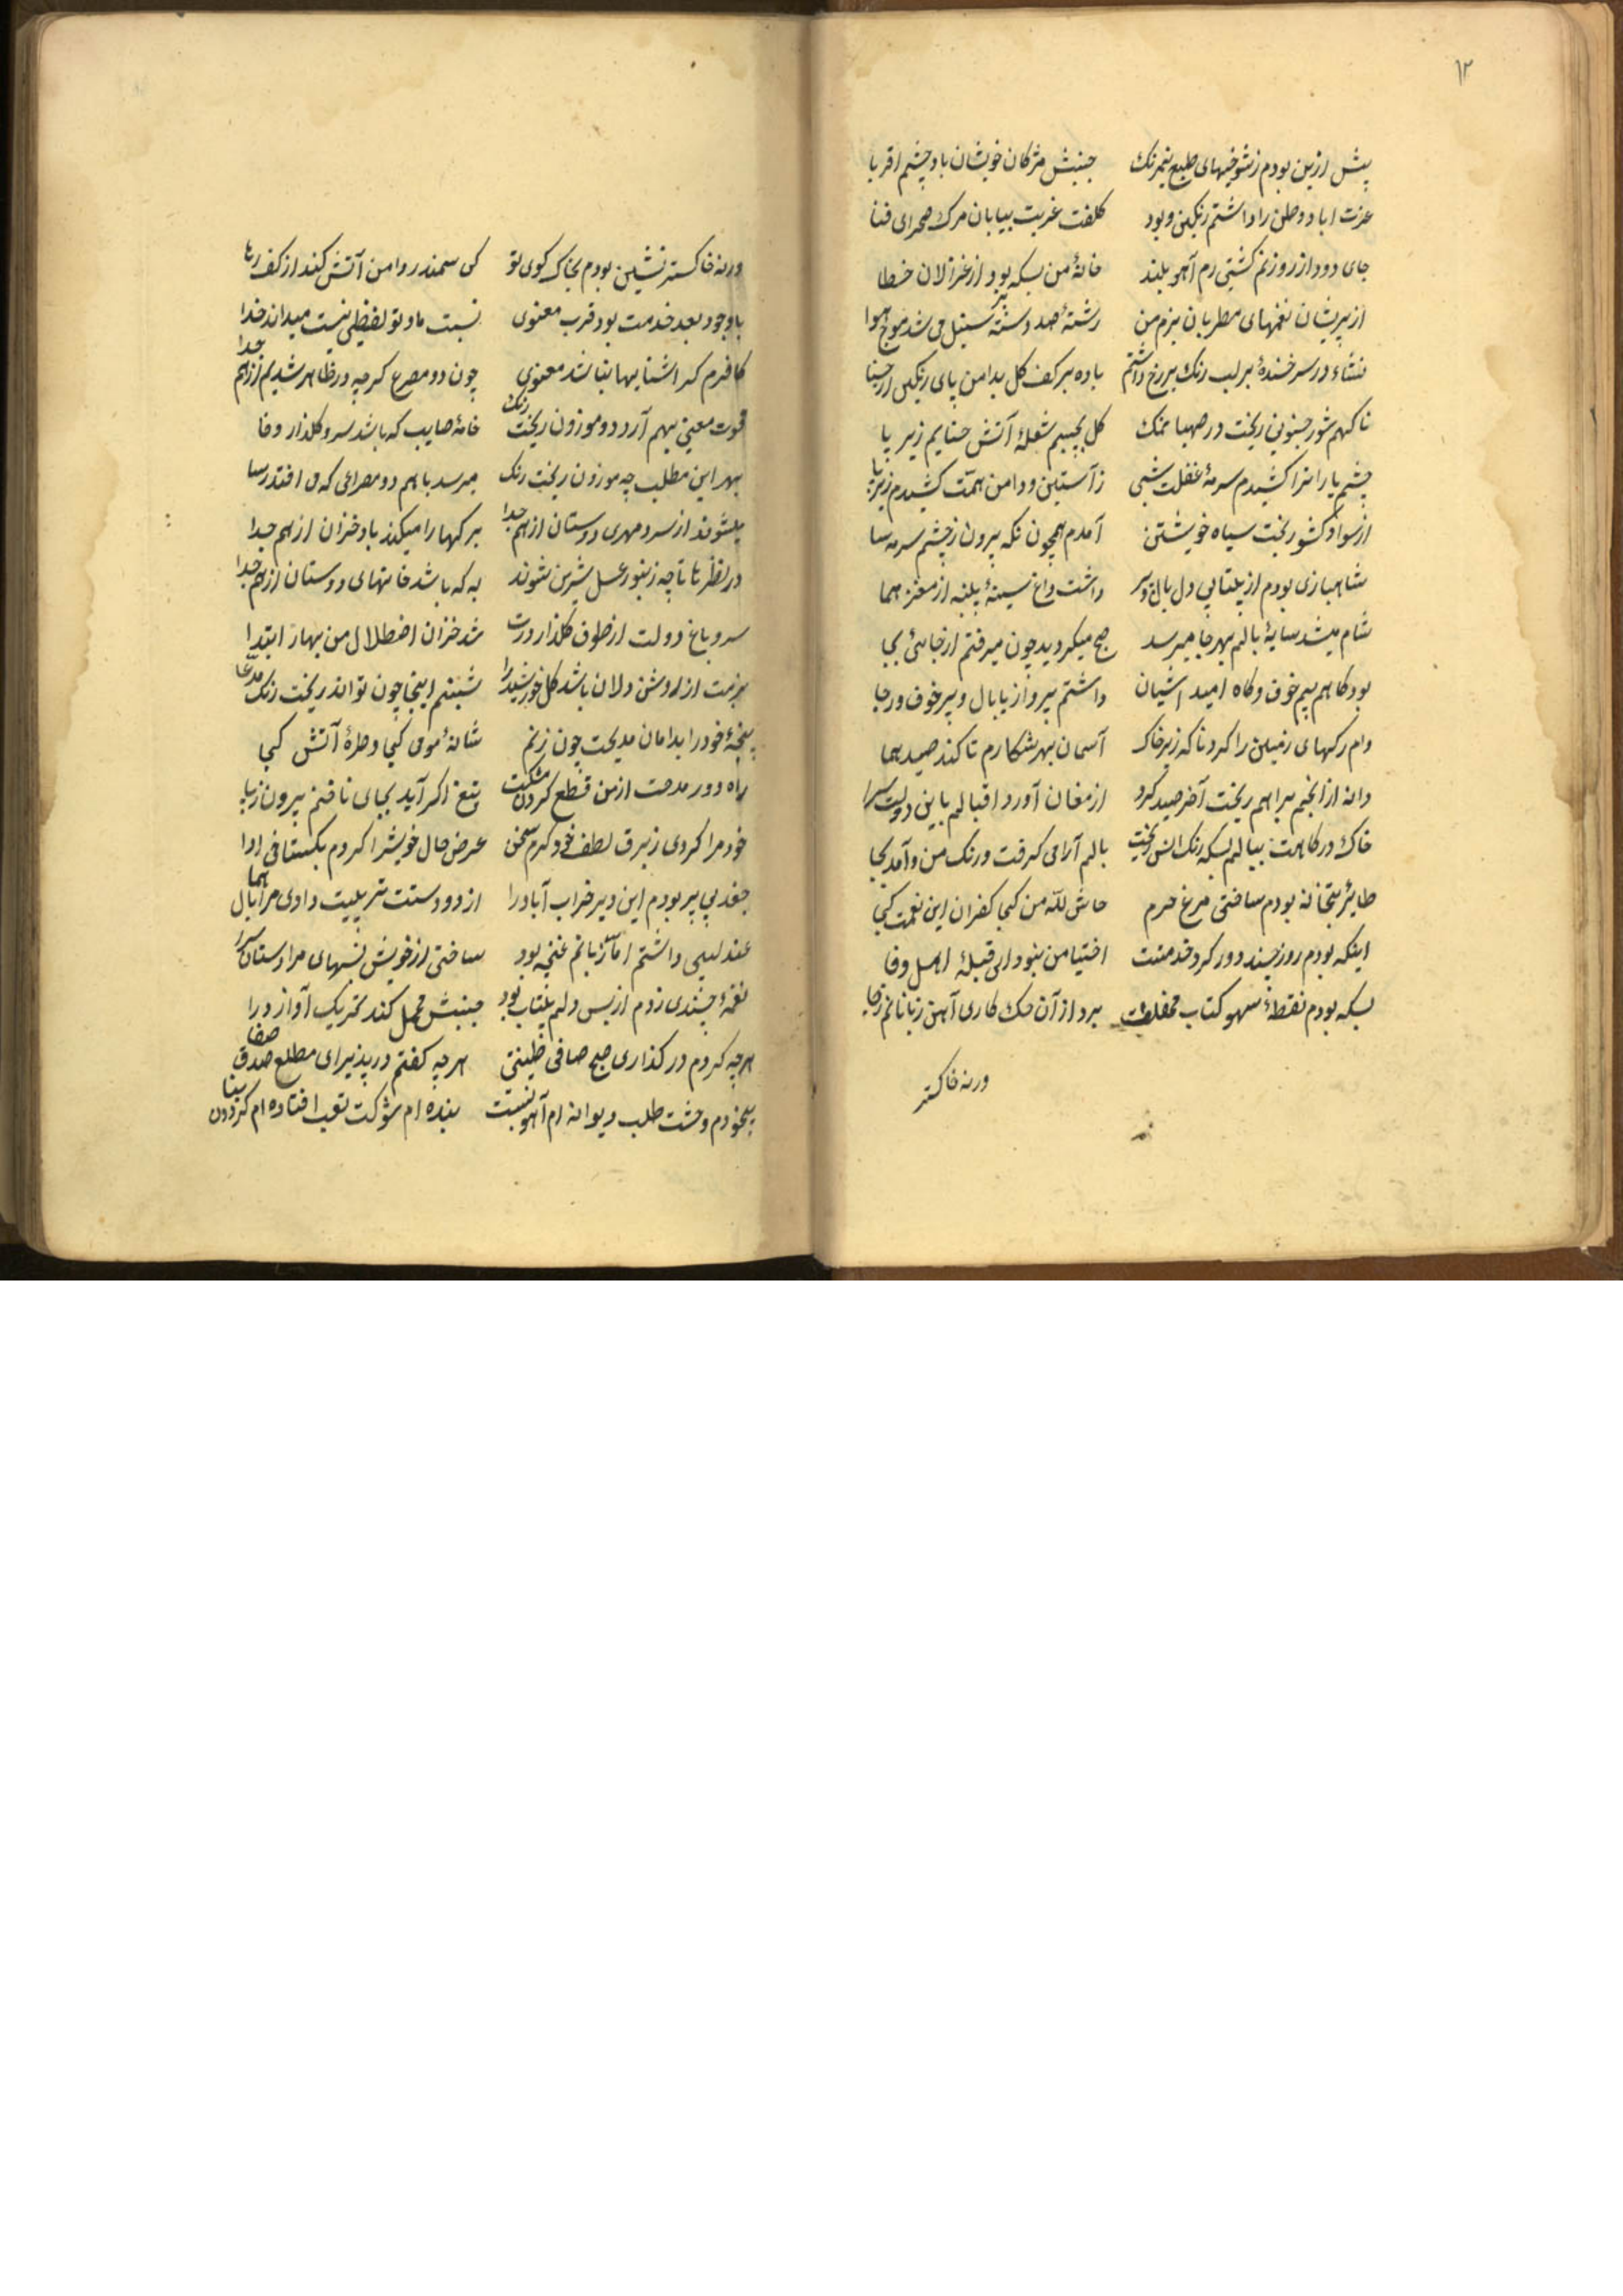 ۱۲
پیش ازین بودم زشوخیهای طبع نیمرنک جنبش مژکان خویشان باد چشم اقربا
عزت اباد وطن را داشتم رنکین وبود کلفت غربت بیابان مرک صحرای فنا
جای دود از روزنم کشتی رم آهو بلند خانهٔ من بسکه بود از غزالان خطا
از پریشان نغمهای مطربان بزم من رشتهٔ صد دسته سنبل می شد موج هوا
نشاء در سر خندهٔ بر لب رنک بر رخ داشتم باده بر کف کل بدامن پای رنکین از حنا
ناکهم شور جنونی ریخت در صهبا نمک کل بجیبم شعلهٔ آتش حنایم زیر پا
چشم یارانرا کشیدم سرمهٔ غفلت شبی زآستین ودامن همت کشیدم زیر پا
از سواد کشور بخت سیاه خویشتن آمدم همچون نکه بیرون از چشم سرمه سا
شاهبازی بودم از بیتابی دل بال و پر داشت داغ سینهٔ پلنبه از مغز هما
شام میشد سایهٔ بالم بهر جا میرسد صبح میکردید چون میرفتم از جائی بجا
بود کاهم بیم خوف وکاه امید اشیان داشتم پرواز با بال وپر خوف ورجا
وام رکهای زمین را کرد ناکه زیر خاک آسمان بهر شکارم تا کند صید هما
دانه از انجم براهم ریخت آخر صید کرد ارمغان آورد اقبالم باین دولت سرا
خاک درکاهت ببالم بسکه رنک انس ریخت بالم آرامی کرفت ورنک من وآمد بجا
طایر بتخانه بودم ساختی مرغ حرم حاش لله من کجی کفران این نعمت کجی
اینکه بودم روز چند دور کرد خدمتت اختیا من نبود ای قبلهٔ اهل وفا
بسکه بودم نقطهٔ سهو کتاب محفلت برد از آن حک کاری آهن زبانانم زجا
ورنه خاکستر
ورنه خاکستر نشین بودم بخاک کوی تو کی سمندر دامن آتش کند از کف رها
باوجود بعد خدمت بود قرب معنوی نسبت ما وتو لفظی نیست میداند خدا
کافرم کر اشنایها نباشد معنوی چون دو مصرع کرچه در ظاهر شدیم از هم جدا
قوت معنی بهم آرد دو موزون ریخت رنک خامهٔ صایب که باشد سرو کلذار وفا
بهر این مطلب چه موزون ریخت رنک میرسد با هم دو مصراعی که می افتد رسا
میشوند از سرد مهری دوستان از هم جدا برکها را میکند باد خزان از هم جدا
در نظر تا تاچه زنبور عسل شیرین شوند به که باشد خانهای دوستان از هم جدا
سرو باغ دولت از طوف کلذار درت شد خزان اضطلال من بهار ابتدا
بزمت از روشن دلان باشد کل خورشیدرا شبنم اینجا چون تواند ریخت رنک مدعا
پنجهٔ خودرا بدامان مدیحت چون زنم شانهٔ موی کجی وطرهٔ آتش کجی
راه دور مدحت از من قطع کردن مشکلست تیغ اکر آید بجای ناخنم بیرون زپا
خود مرا کردی زبرق لطف خود کرم سخن عرض حال خویشرا کردم بکستاخی ادا
جغد بی پر بودم این دیر خراب آبادرا از دو دستت تربیت دادی مرا بال هما
عندلیبی داشتم اما زبانم غنچه بود ساختی از خویش نسبهای مرا دستان سرا
نغمهٔ چندی زدم از بس دلم بیتاب بود جنبش محمل کند تحریک آواز درا
هرچه کردم درکذاری صبح صافی طینتی هرچه کفتم درپذیرای مطلع صدق صفا
بیخودم وحشت طلب دیوانه ام آهو نسبت بنده ام شوکت تعب افتاده ام